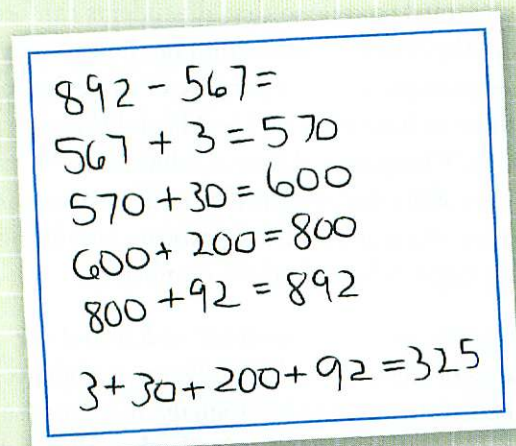 892 - 567 =
567 + 3 = 570
570 + 30 = 600
600 + 200 = 800
800 + 92 = 892
3 + 30 + 200 + 92 = 325